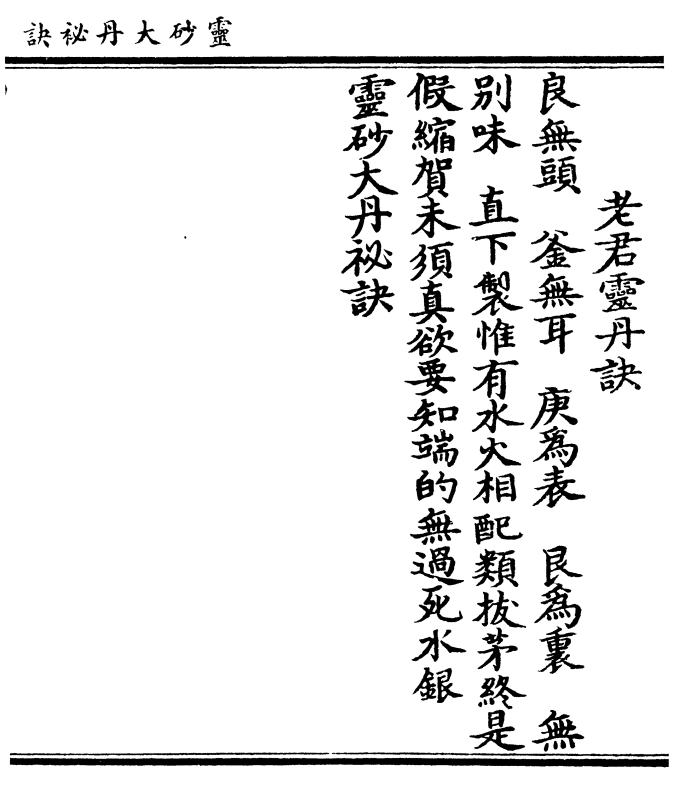 靈砂大丹祕訣
老君靈丹訣
良無頭　釜無耳　庚爲表　艮爲裏　無
別味　直下製惟有水火相配類拔茅終是
假縮賀未須真欲要知端的無過死水銀
靈砂大丹祕訣